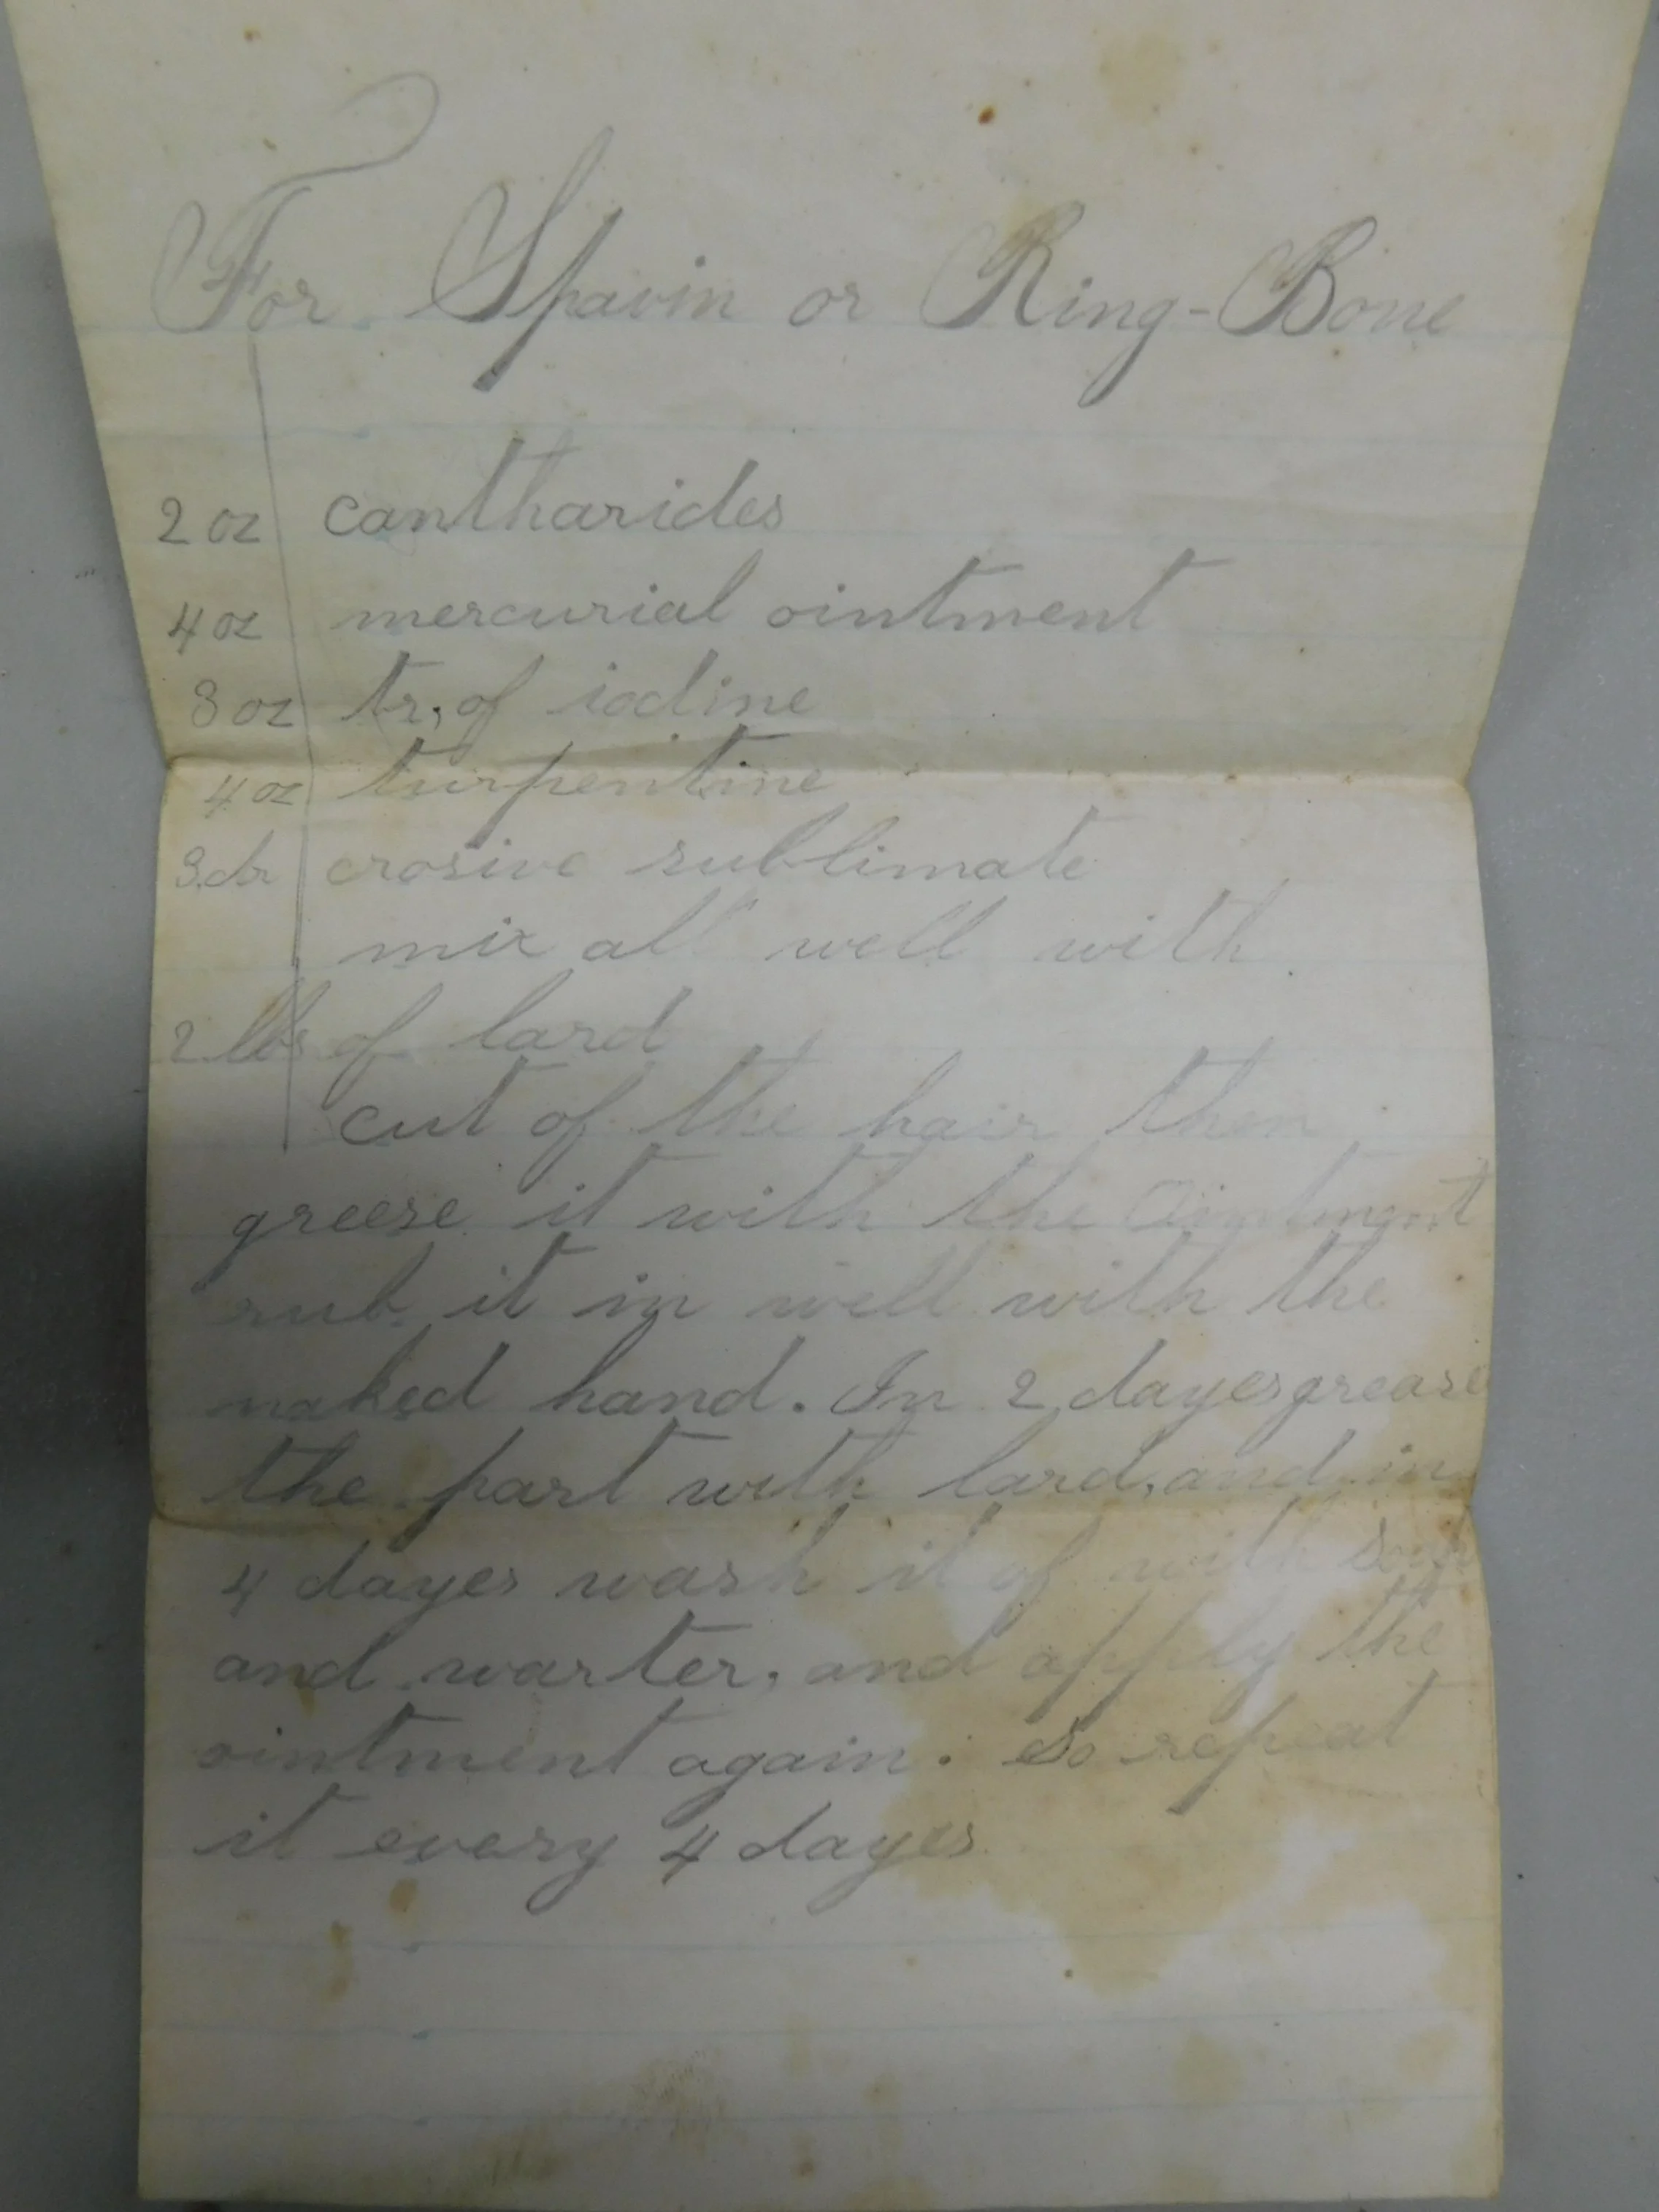 For Spavin or Ring-Bone
2 oz cantharides
4 oz mercurial ointment
3 oz tr, of iodine
4 oz turpentine
3 dr crosive sublimate
mix all well with
2 lbs of lard
cut of the hair then
greese it with the Ointment
rub it in well with the
naked hand. In 2 dayes grease
the part with lard, and in
4 dayes wash it of with soap
and warter, and apply the
ointment again. So repeat
it every 4 dayes